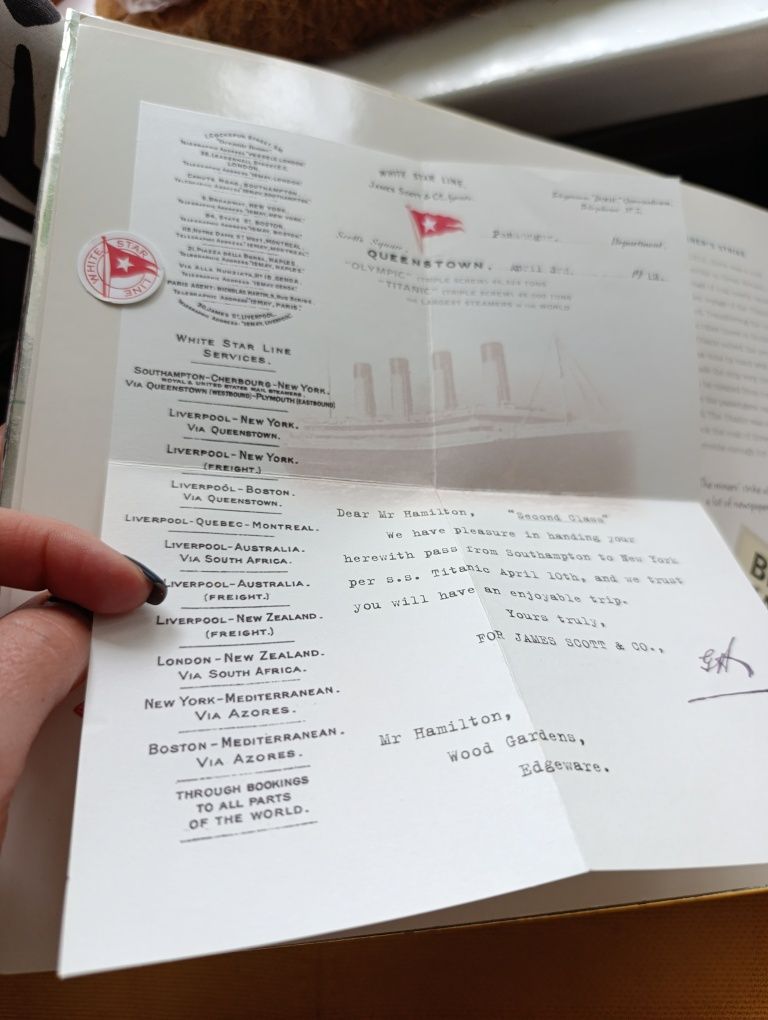 1, COCKSPUR STREET, S.W.
38, LEADENHALL STREET, E.C.
LONDON.
CANUTE ROAD, SOUTHAMPTON.
9, BROADWAY, NEW YORK.
TELEGRAPHIC ADDRESS "ISMAY, NEW YORK."
84, STATE ST. BOSTON.
TELEGRAPHIC ADDRESS "ISMAY, BOSTON."
118, NOTRE DAME ST WEST, MONTREAL.
21, PIAZZA DELLA BORSA, NAPLES.
TELEGRAPHIC ADDRESS "ISMAY, NAPLES."
VIA ALLA NUNZIATA, Nº 18, GENOA.
TELEGRAPHIC ADDRESS "ISMAY, GENOA."
PARIS AGENT: NICHOLAS MARTIN, 9, RUE SCRIBE.
TELEGRAPHIC ADDRESS: "ISMAY, PARIS."
30, JAMES ST, LIVERPOOL.
TELEGRAPHIC ADDRESS: "ISMAY, LIVERPOOL."
WHITE STAR LINE
WHITE STAR LINE
SERVICES.
SOUTHAMPTON-CHERBOURG-NEW YORK.
ROYAL & UNITED STATES MAIL STEAMERS.
VIA QUEENSTOWN (WESTBOUND)-PLYMOUTH (EASTBOUND)
LIVERPOOL-NEW YORK.
VIA QUEENSTOWN.
LIVERPOOL-NEW YORK.
(FREIGHT.)
LIVERPOOL-BOSTON.
VIA QUEENSTOWN.
LIVERPOOL-QUEBEC-MONTREAL.
LIVERPOOL-AUSTRALIA.
VIA SOUTH AFRICA.
LIVERPOOL-AUSTRALIA.
(FREIGHT.)
LIVERPOOL-NEW ZEALAND.
(FREIGHT.)
LONDON-NEW ZEALAND.
VIA SOUTH AFRICA.
NEW YORK-MEDITERRANEAN.
VIA AZORES.
BOSTON-MEDITERRANEAN.
VIA AZORES.
THROUGH BOOKINGS
TO ALL PARTS
OF THE WORLD.
WHITE STAR LINE.
James Scott & Co. Agents.
Scotts Square,
Passenger. Department.
QUEENSTOWN. April 3rd. 1912.
"OLYMPIC" (TRIPLE SCREW) 45,324 TONS
"TITANIC" (TRIPLE SCREW) 45,000 TONS
THE LARGEST STEAMERS IN THE WORLD
Dear Mr Hamilton, "Second Class"
We have pleasure in handing your
herewith pass from Southampton to New York
per s.s. Titanic April 10th, and we trust
you will have an enjoyable trip.
Yours truly,
FOR JAMES SCOTT & CO.,
Mr Hamilton,
Wood Gardens,
Edgeware.
STRIKE
The miners' strike
a lot of newspaper